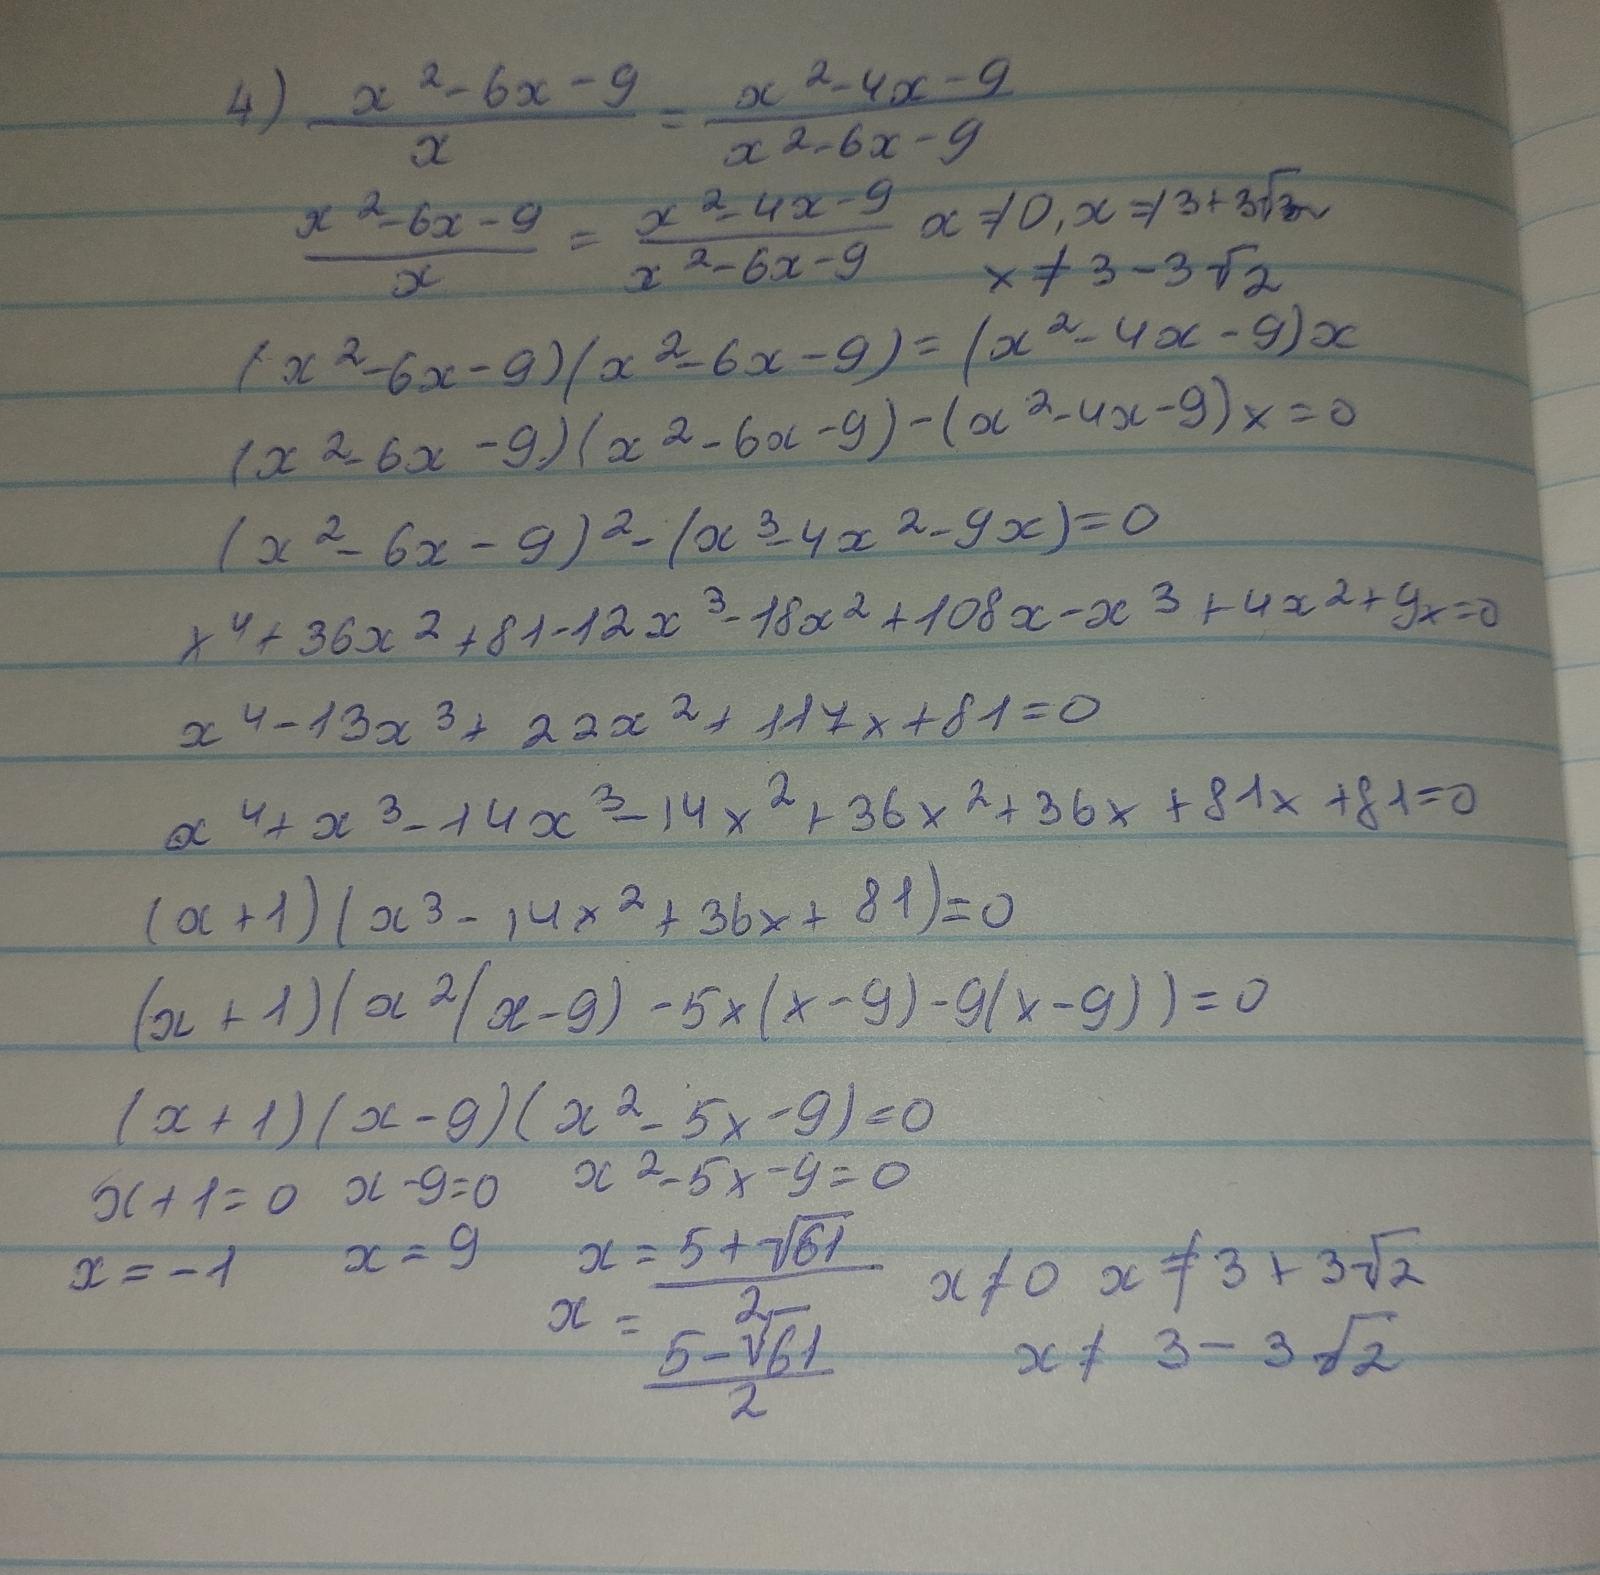 4) \frac{x^2-6x-9}{x} = \frac{x^2-4x-9}{x^2-6x-9}
\frac{x^2-6x-9}{x} = \frac{x^2-4x-9}{x^2-6x-9} x≠0, x≠3+3√2
x≠3-3√2
(x^2-6x-9)(x^2-6x-9)=(x^2-4x-9)x
(x^2-6x-9)(x^2-6x-9)-(x^2-4x-9)x=0
(x^2-6x-9)^2-(x^3-4x^2-9x)=0
x^4+36x^2+81-12x^3-18x^2+108x-x^3+4x^2+9x=0
x^4-13x^3+22x^2+117x+81=0
x^4+x^3-14x^3-14x^2+36x^2+36x+81x+81=0
(x+1)(x^3-14x^2+36x+81)=0
(x+1)(x^2(x-9)-5x(x-9)-9(x-9))=0
(x+1)(x-9)(x^2-5x-9)=0
x+1=0 x-9=0 x^2-5x-9=0
x=-1 x=9 x=\frac{5+√61}{2} x≠0 x≠3+3√2
x=\frac{5-√61}{2} x≠3-3√2